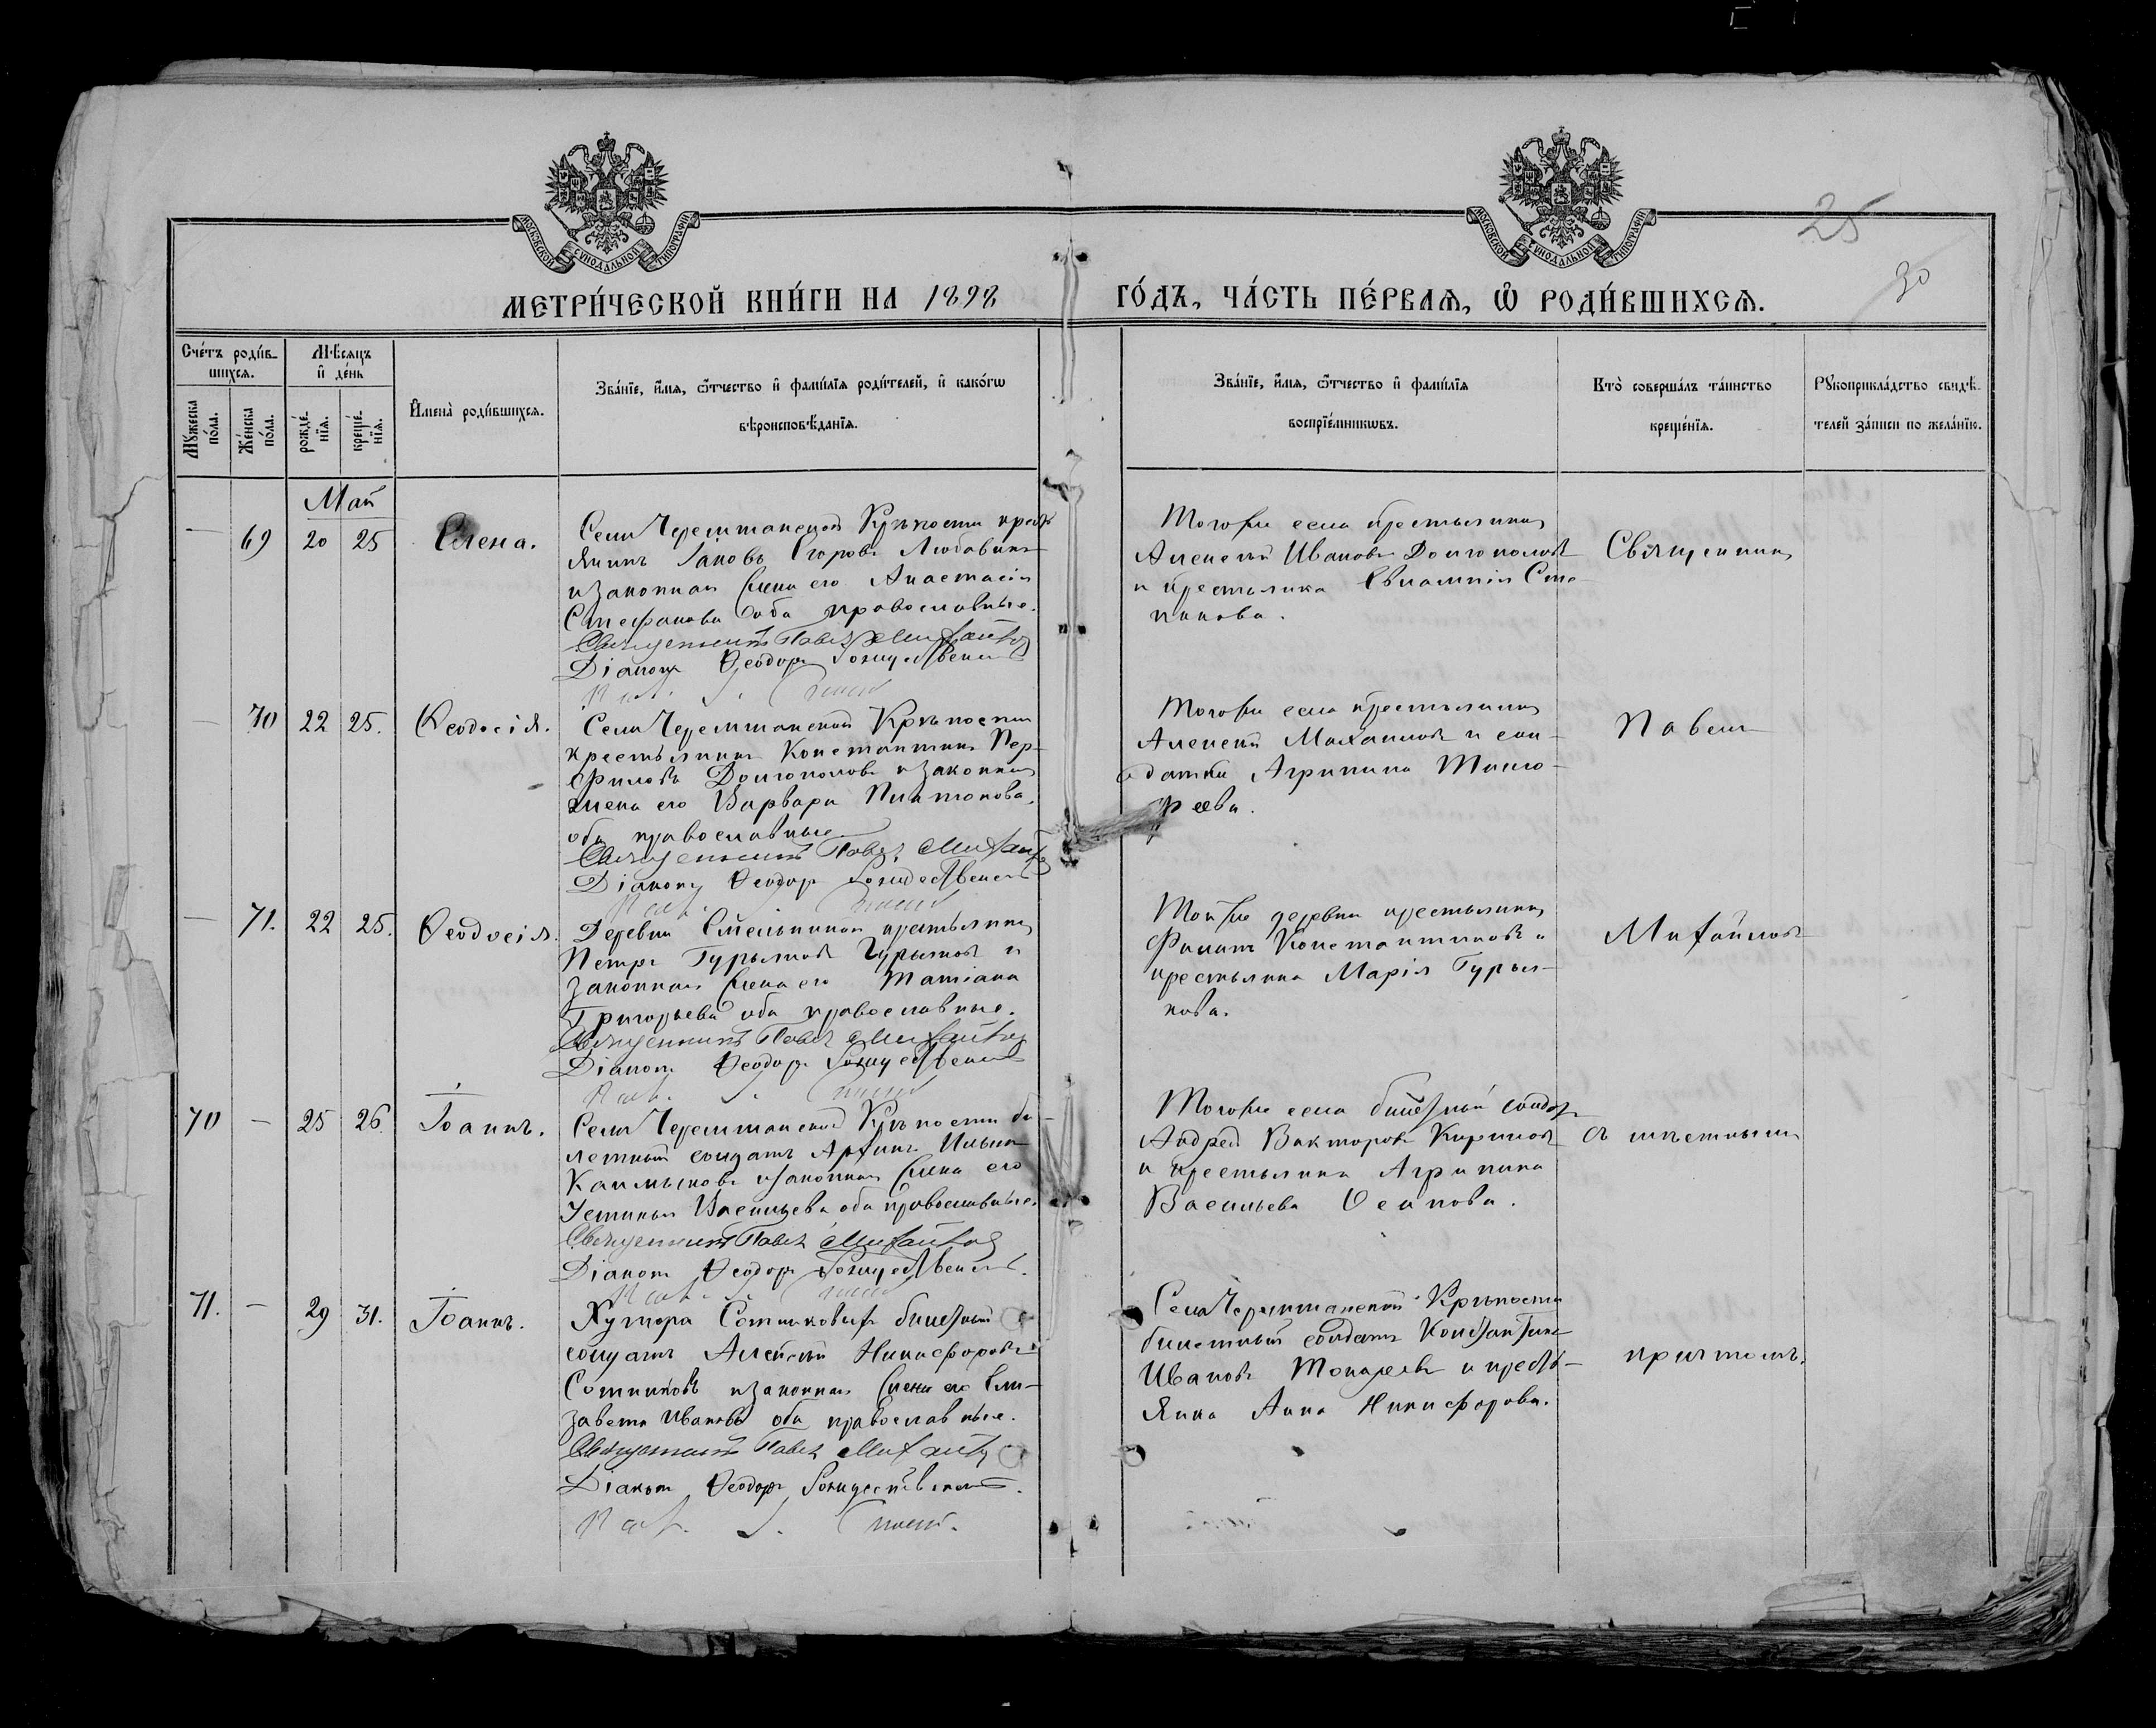 25
30
МОСКОВСКОЙ СѴНОДАЛЬНОЙ ТИПОГРАФІИ
МОСКОВСКОЙ СѴНОДАЛЬНОЙ ТИПОГРАФІИ
МЕТРИ́ЧЕСКОЙ КНИ́ГИ НА 1898
ГО́ДЪ, ЧА́СТЬ ПЕ́РВАЯ, Ѽ РОДИ́ВШИХСЯ.
Сче́тъ роди́в-
шихся.
Мꙋ́жеска по́ла.
Же́нска по́ла.
Мѣ́сяцъ
и҆ де́нь
рожде́-
нїя.
креще́-
нїя.
И҆мена̀ роди́вшихся.
Зва́нїе, и҆́мя, ѻ҆́тчество и҆ фамилїя роди́телей, и҆ како́гѡ
вѣроисповѣ́данїя.
Зва́нїе, и҆́мя, ѻ҆́тчество и҆ фами́лїя
воспрїе́мникѡвъ.
Кто̀ соверша́лъ та́инство
креще́нїя.
Рꙋкоприкла́дство свидѣ́-
телей за́писи по жела́нїю.
Май
— 69 20 25 Елена.
Села Черемшанской Крѣпости кресть
янинъ Іаковъ Егоровъ Любавинъ
и законная жена его Анастасія
Стефанова оба православные.
Священникъ Павелъ Михайлов
Діаконъ Ѳеодоръ Рождественскій
Тогоже села крестьянинъ
Алексѣй Ивановъ Долгополовъ
и крестьянка Евлампія Сте-
панова.
Священникъ
— 70 22 25. Ѳеодосія.
Села Черемшанской Крѣпости
крестьянинъ Константинъ Пер-
филовъ Долгополовъ и законная
жена его Варвара Платонова,
оба православные.
Священникъ Павелъ Михайлов
Діаконъ Ѳеодоръ Рождественскій
Тогоже села крестьянинъ
Алексѣй Михаиловъ и сол-
датка Агрипина Тимо-
феева.
Павелъ
— 71. 22 25. Ѳеодосія.
Деревни крестьянинъ
Петръ Гурьяновъ Гурьяновъ и
законная жена его Татіана
Григорьева оба православные.
Священникъ Павелъ Михайлов
Діаконъ Ѳеодоръ Рождественскій
Тойже деревни крестьянинъ
Филипъ Константиновъ и
крестьянка Марія Гурья-
нова.
Михайловъ
70 — 25 26 Іоаннъ.
Села Черемшанской Крѣпости би-
летный солдатъ Архипъ Ильинъ
Калмыковъ и законная жена его
Устинья Васильева оба православные.
Священникъ Павелъ Михайлов
Діаконъ Ѳеодоръ Рождественскій.
Тогоже села билетный солдатъ
Андрей Викторовъ Кириловъ
и крестьянка Агрипина
Васильева Осипова.
съ мѣстнымъ
71. — 29 31. Іоаннъ.
Хутора билетный
солдатъ Алексѣй Никифоровъ
Сотниковъ и законная жена его Ели-
завета Иванова оба православные.
Священникъ Павелъ Михайлов
Діаконъ Ѳеодоръ Рождественскій.
Села Черемшанской Крѣпости
билетный солдатъ Константинъ
Ивановъ Токаревъ и кресть-
янка Анна Никифорова.
причтомъ.